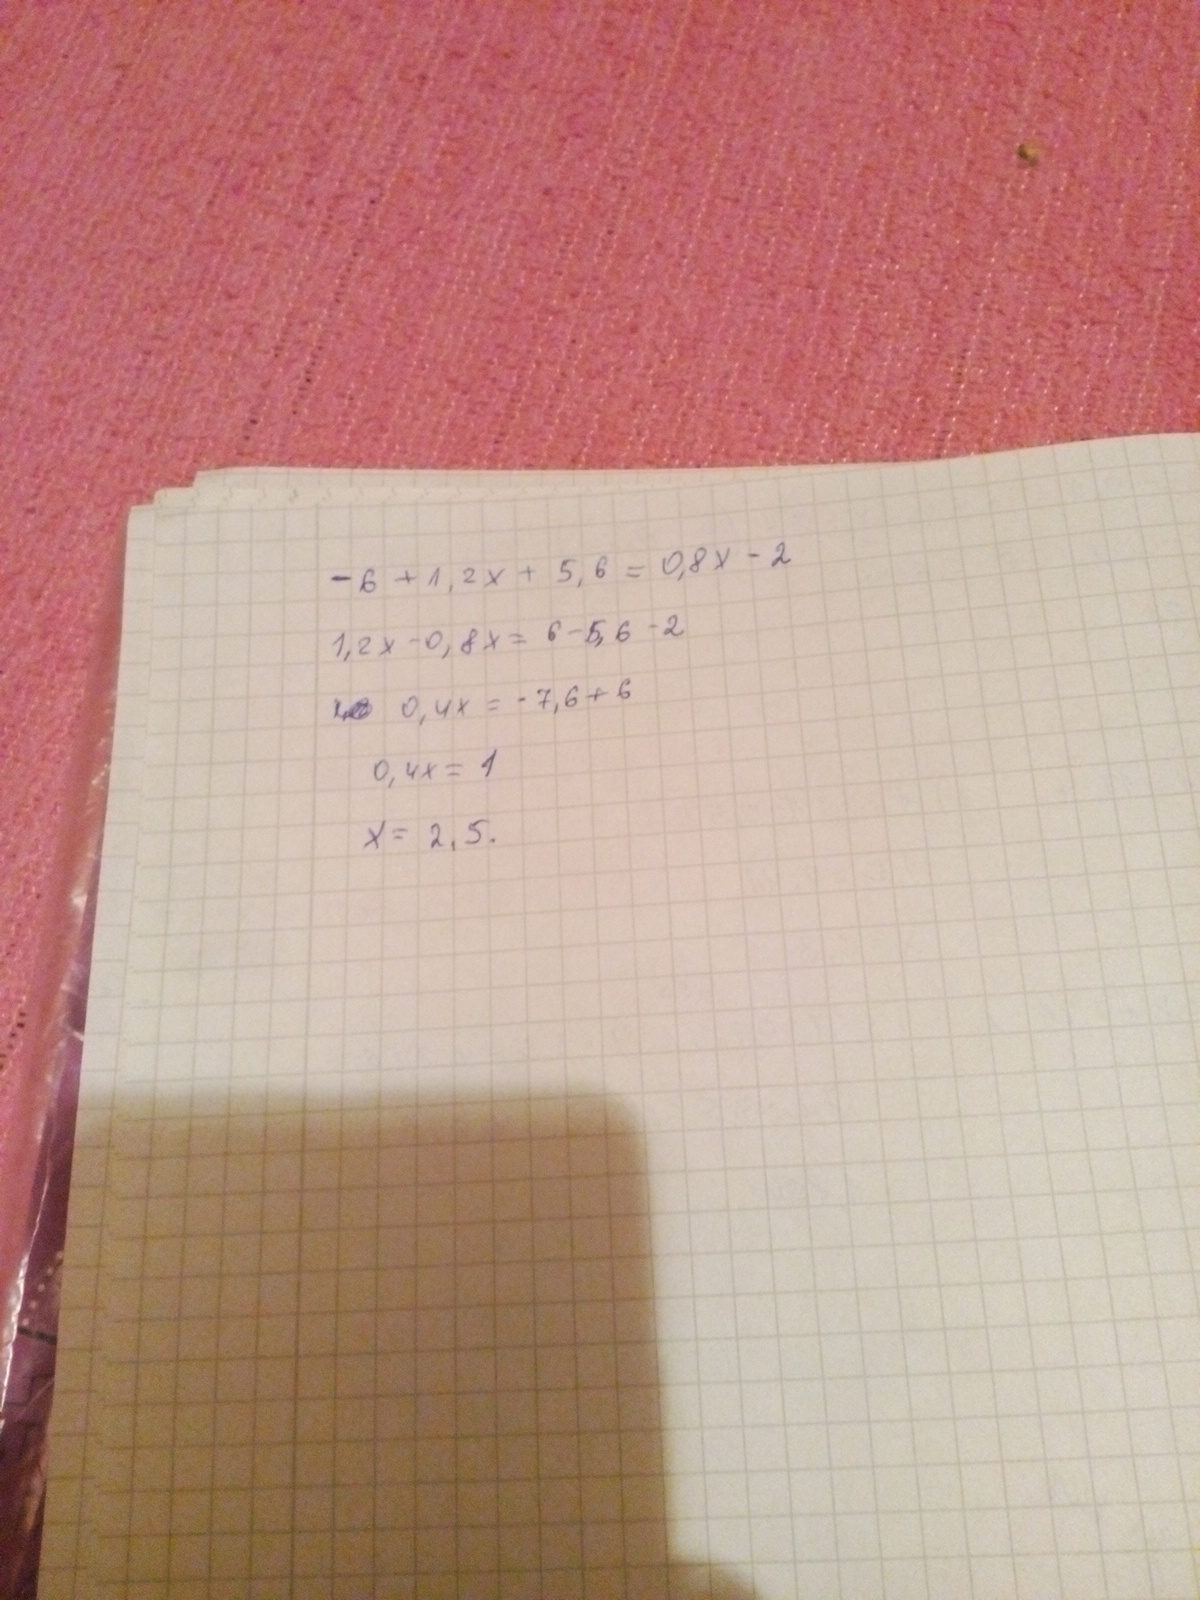 -6 + 1,2x + 5,6 = 0,8x - 2
1,2x - 0,8x = 6 - 5,6 - 2
0,4x = -7,6 + 6
0,4x = 1
x = 2,5.